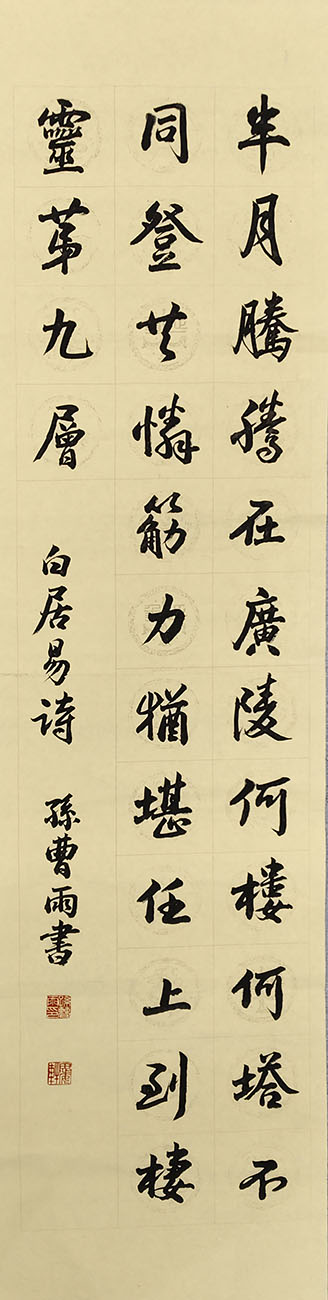 半月騰騰在廣陵何樓何塔不
同登共憐筋力猶堪任上到棲
靈苐九層
白居易詩 孫曹雨書